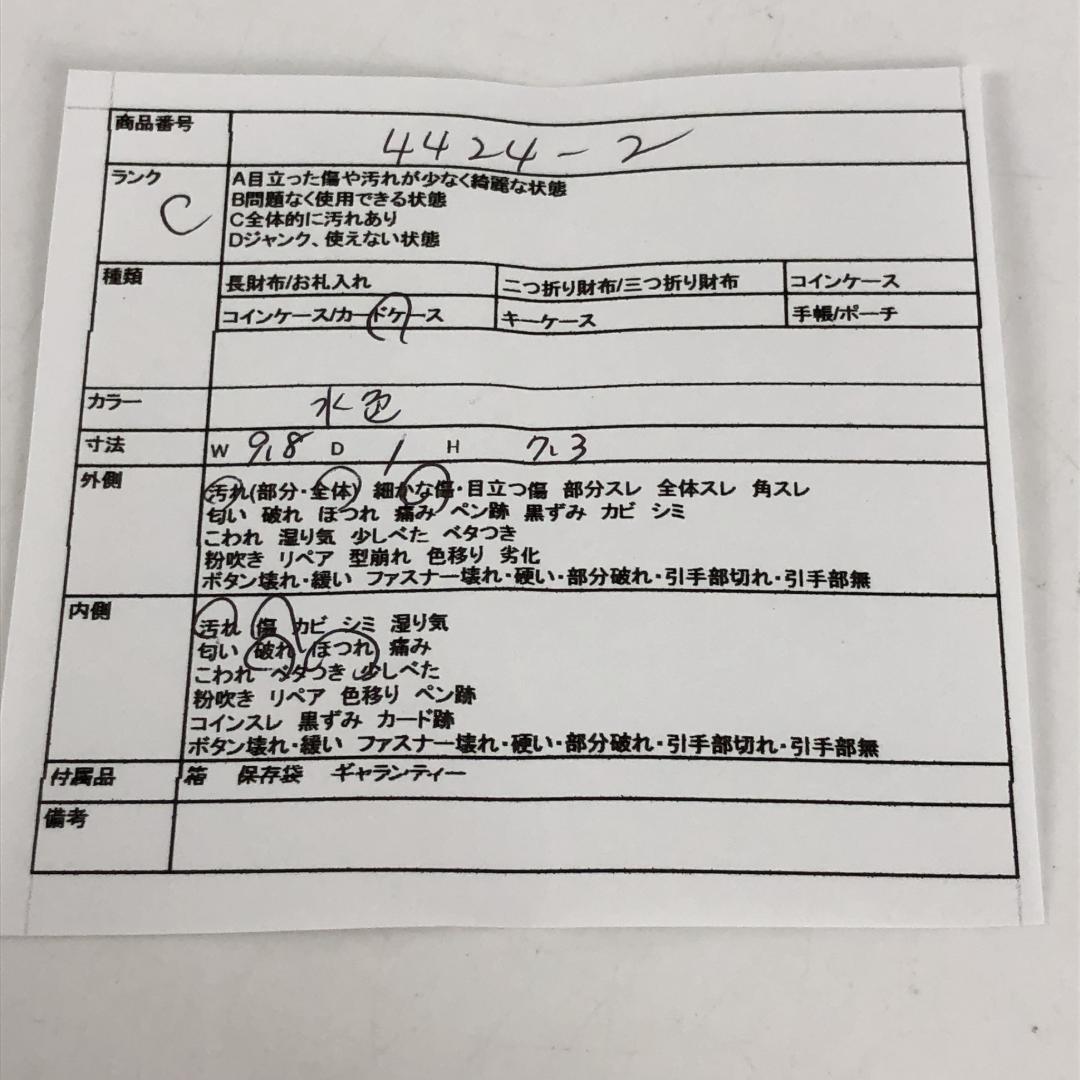 商品番号 4424-2
ランク C
A目立った傷や汚れが少なく綺麗な状態
B問題なく使用できる状態
C全体的に汚れあり
Dジャンク、使えない状態
種類 長財布/お札入れ 二つ折り財布/三つ折り財布 コインケース
コインケース/カードケース キーケース 手帳/ポーチ
カラー 水色
寸法 W 9.8 D 1 H 7.3
外側 汚れ(部分・全体) 細かな傷・目立つ傷 部分スレ 全体スレ 角スレ
匂い 破れ ほつれ 痛み ペン跡 黒ずみ カビ シミ
こわれ 湿り気 少しべた ベタつき
粉吹き リペア 型崩れ 色移り 劣化
ボタン壊れ・緩い ファスナー壊れ・硬い・部分破れ・引手部切れ・引手部無
内側 汚れ 傷 カビ シミ 湿り気
匂い 破れ ほつれ 痛み
こわれ ベタつき 少しべた
粉吹き リペア 色移り ペン跡
コインスレ 黒ずみ カード跡
ボタン壊れ・緩い ファスナー壊れ・硬い・部分破れ・引手部切れ・引手部無
付属品 箱 保存袋 ギャランティー
備考